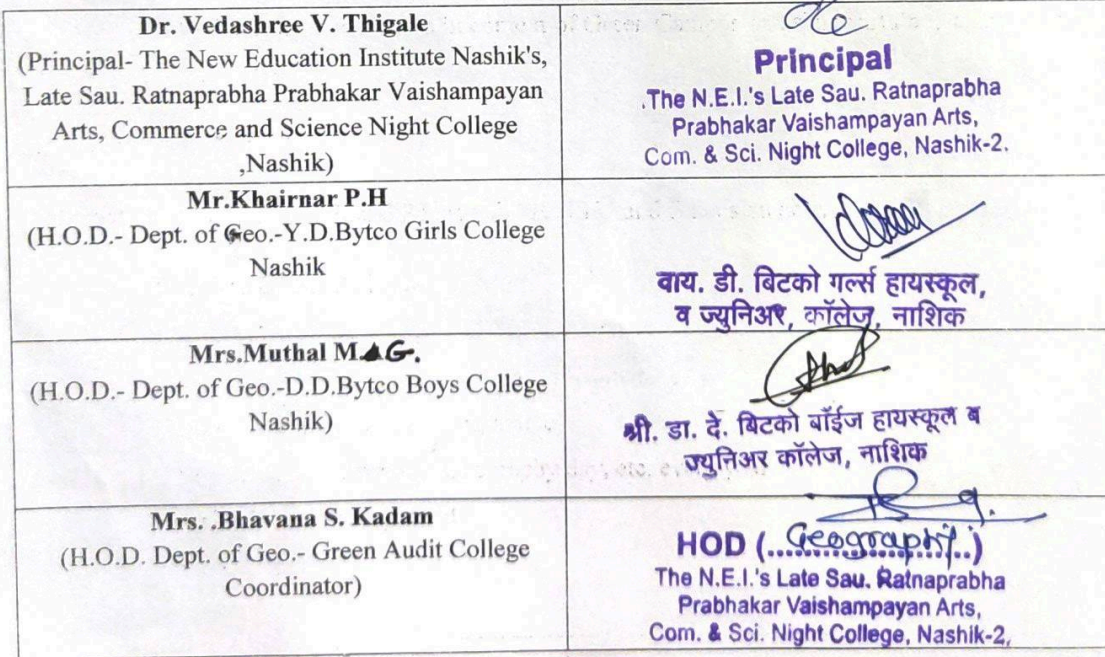 Dr. Vedashree V. Thigale
(Principal- The New Education Institute Nashik's,
Late Sau. Ratnaprabha Prabhakar Vaishampayan
Arts, Commerce and Science Night College
,Nashik)
Principal
.The N.E.I.'s Late Sau. Ratnaprabha
Prabhakar Vaishampayan Arts,
Com. & Sci. Night College, Nashik-2.
Mr.Khairnar P.H
(H.O.D.- Dept. of Geo.-Y.D.Bytco Girls College
Nashik
वाय. डी. बिटको गर्ल्स हायस्कूल,
व ज्युनिअर, कॉलेज, नाशिक
Mrs.Muthal M. G.
(H.O.D.- Dept. of Geo.-D.D.Bytco Boys College
Nashik)
श्री. डा. दे. बिटको बॉईज हायस्कूल व
ज्युनिअर कॉलेज, नाशिक
Mrs. .Bhavana S. Kadam
(H.O.D. Dept. of Geo.- Green Audit College
Coordinator)
HOD (..Geography..)
The N.E.I.'s Late Sau. Ratnaprabha
Prabhakar Vaishampayan Arts,
Com. & Sci. Night College, Nashik-2,